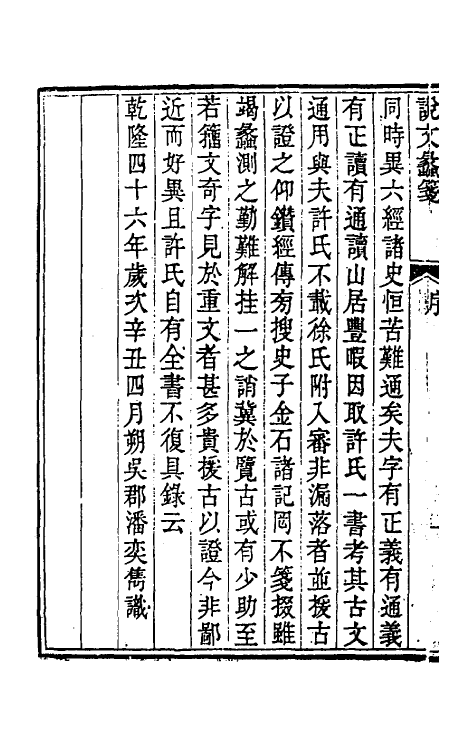 說文蠡箋
同時異六經諸史恒苦難通矣夫字有正義有通義
有正讀有通讀山居豐暇因取許氏一書考其古文
通用與夫許氏不載徐氏附入審非漏落者並援古
以證之仰鑽經傳旁搜史子金石諸記罔不箋掇雖
竭蠡測之勤難解挂一之誚冀於覽古或有少助至
若籀文奇字見於重文者甚多貴援古以證今非鄙
近而好異且許氏自有全書不復具錄云
乾隆四十六年歲次辛丑四月朔吳郡潘奕雋識